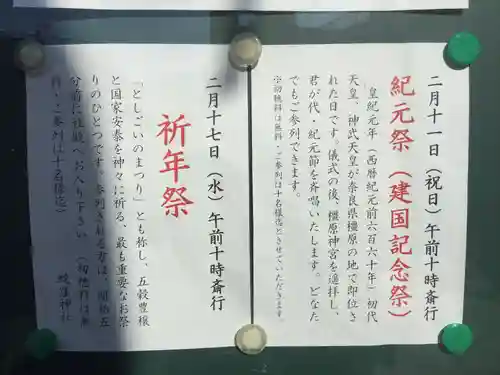 二月十一日(祝日)午前十時斎行
紀元祭(建国記念祭)
皇紀元年(西暦紀元前六百六十年)初代
天皇、神武天皇が奈良県橿原の地で即位さ
れた日です。儀式の後、橿原神宮を遥拝し、
君が代・紀元節を斉唱いたします。どなた
でもご参列できます。
※初穂料は無料・ご参列は十名様迄とさせていただきます。
二月十七日(水)午前十時斎行
祈年祭
「としごいのまつり」とも称し、五穀豊穣
と国家安泰を神々に祈る、最も重要なお祭
りのひとつです。参列される方は、開始五
分前に社殿へお入り下さい。(初穂料は無
料・ご参列は十名様迄)
神社